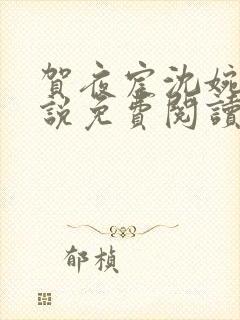 賀夜宧沈婉
說免費閱讀
郁楨